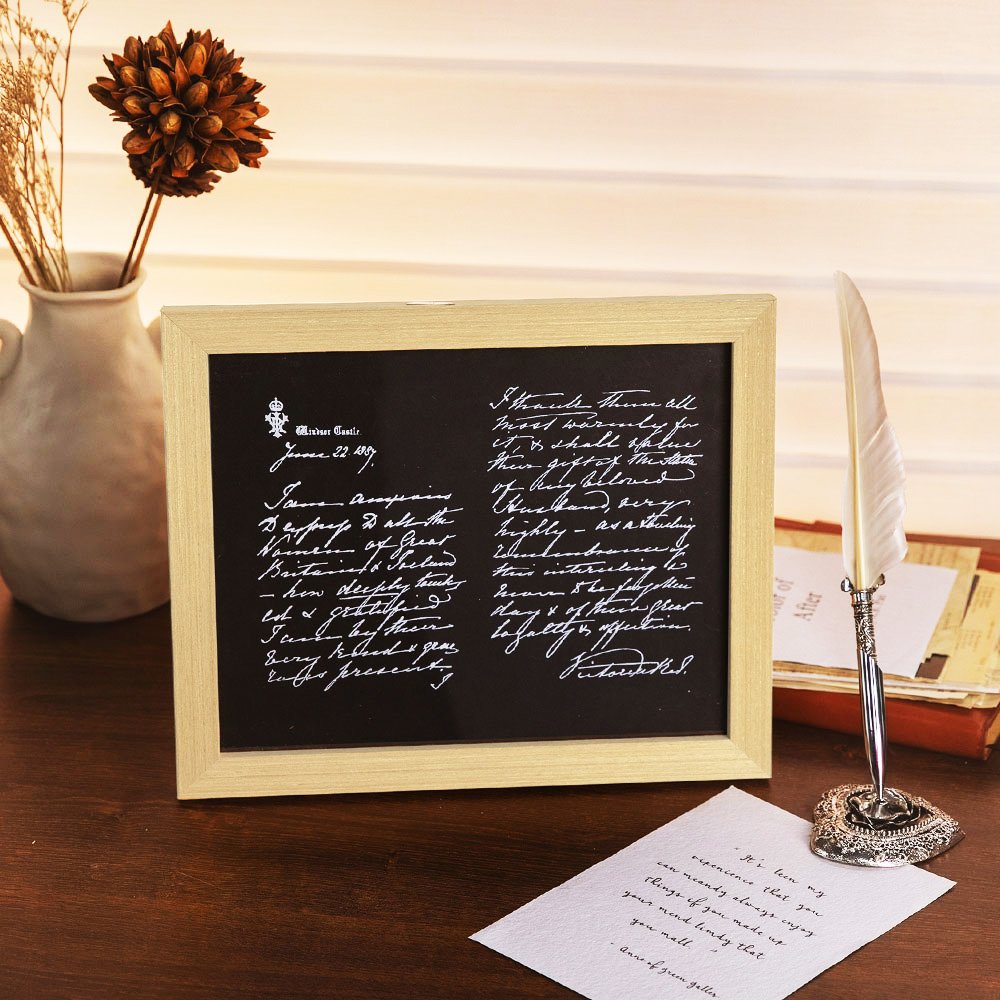 Windsor Castle.
June 22. 1887.
I am anxious
to express to all the
Women of Great
Britain & Ireland
- how deeply touch-
ed & gratified
I am by their
very kind & gene-
rous present.
I
I thank them all
most warmly for
it, & shall value
their gift of the Statue
of my beloved
Husband, very
highly – as a
remembrance of
this interesting &
never to be forgotten
day & of their great
loyalty & affection.
Victoria R.I.
of
After
" It's been my
experience that you
can meandy always enjoy
things if you made up
your mind that
you mall. "
Anne of green galler